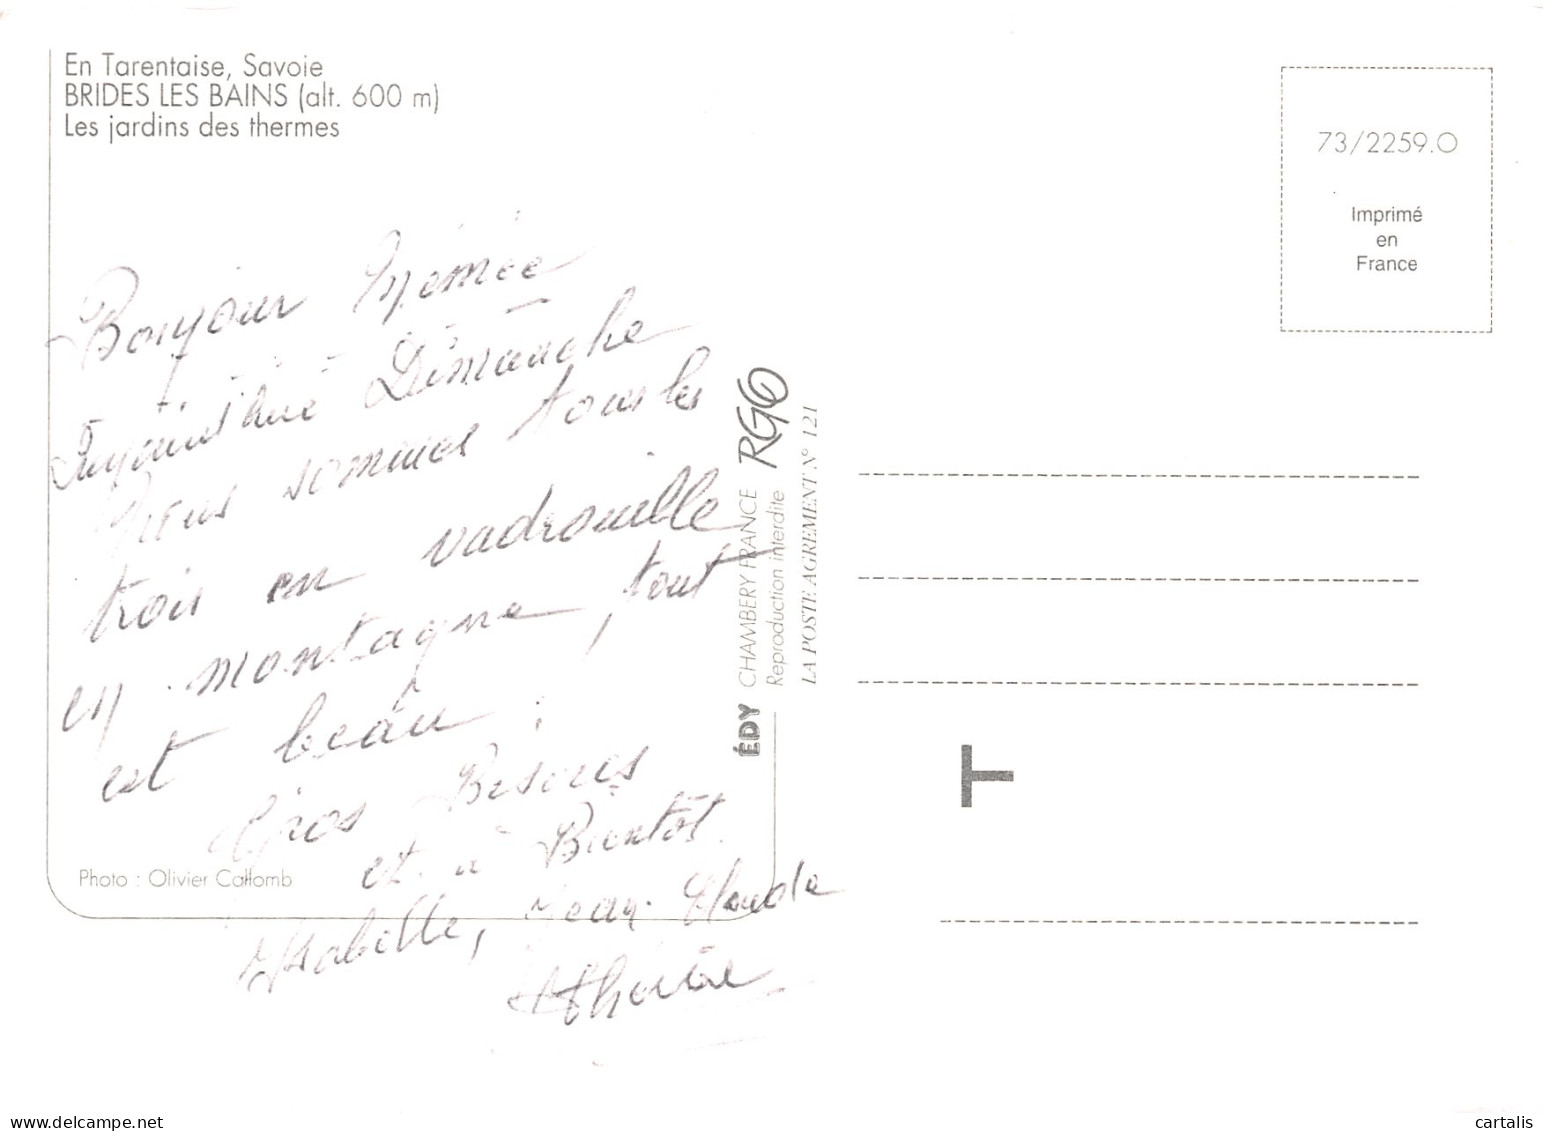 En Tarentaise, Savoie
BRIDES LES BAINS (alt. 600 m)
Les jardins des thermes
73/2259.O
Imprimé
en
France
Bonjour Mémée
Aujourd'hui Dimanche
Nous sommes tous les
trois en vadrouille
en montagne, tout
est beau !
Gros Bisous
et à Bientôt.
Isabelle, Jean-Claude
Photo : Olivier Callomb
ÉDY CHAMBERY FRANCE RGO
Reproduction interdite
LA POSTE AGREMENT N° 121
T
www.delcampe.net
cartalis